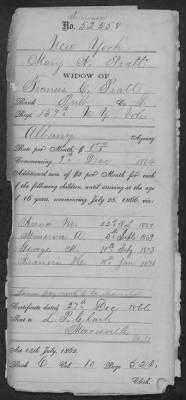 Increase
No. 52558
New York
Mary A. Pratt
WIDOW OF
Francis C. Pratt
Rank Priv Co. I.
Reg't 157th N. Y. Vols
Albany Agency
Rate per Month, $8.00
Commencing 9th Dec 1864
Additional sum of $2 per Month for each
of the following children, until arriving at the age
of 16 years, commencing July 25, 1866, viz:
Minerva A. 5th Sept 1869
George
Certificate dated 27th Dec 1866
Sent to
Act 14th July, 1862.
Book C Vol 10 Page 522
Clerk.